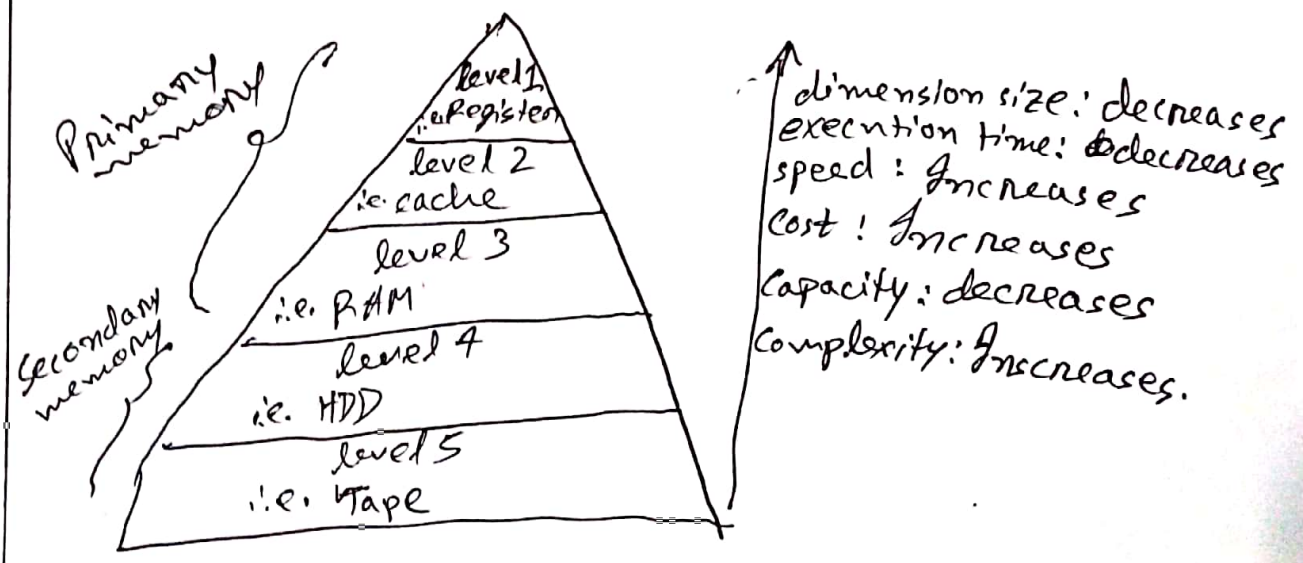 Primary
memory
secondary
memory
level 1
i.e Register
level 2
i.e. cache
level 3
i.e. RAM
level 4
i.e. HDD
level 5
i.e. Tape
dimension size: decreases
execution time: decreases
speed: Increases
Cost: Increases
Capacity: decreases
Complexity: Inscreases.